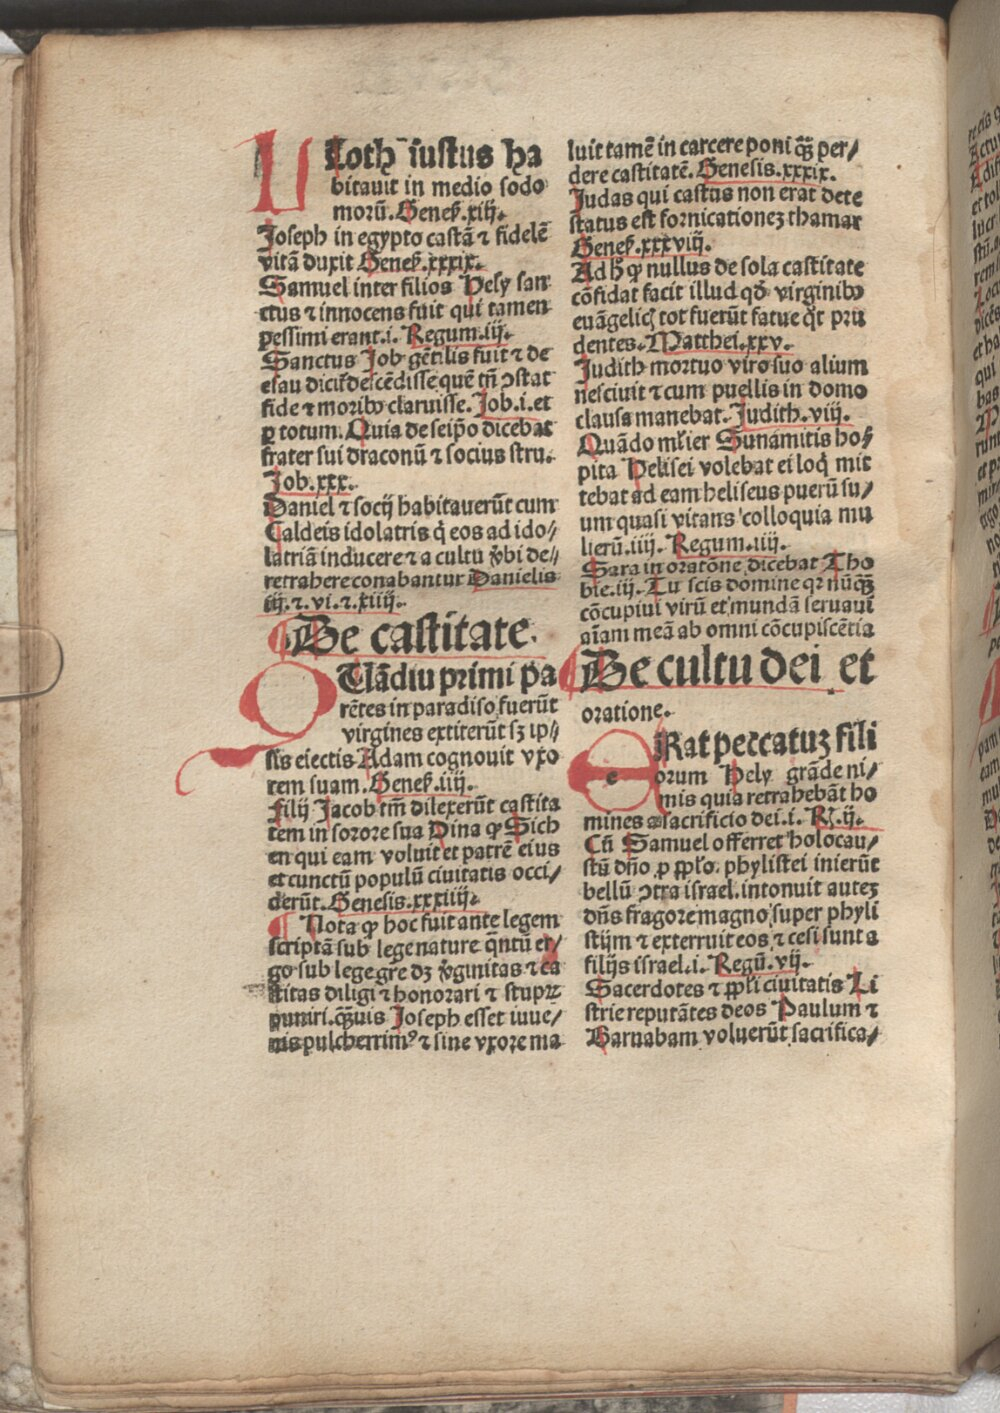 Loth iustus ha
bitauit in medio sodo
morū. Geneſ. xiiij.
Joseph in egypto castā ⁊ fidelē
vitā duxit Geneſ. xxxix.
Samuel inter filios Hely san
ctus ⁊ innocens fuit qui tamen
pessimi erant. i. Regum. iij.
Sanctus Job gētilis fuit ⁊ de
esau dicit̄ descēdisse quē tñ ↄstat
fide ⁊ moribꝰ claruisse. Job. i. et
ꝑ totum. Quia de seip̄o dicebat
frater fui draconū ⁊ socius stru.
Job. xxx.
Daniel ⁊ socij habitauerūt cum
Caldeis idolatris q̄ eos ad ido-
latriā inducere ⁊ a cultu v̄bi dei
retrahere conabantur Danielis
iij. ⁊. vi. ⁊. xiiij.
De castitate.
Quādiu primi pa
rētes in paradiso fuerūt
virgines extiterūt sꝫ ip/
sis eiectis Adam cognouit vxo
rem suam. Geneſ. iiij.
filij Jacob tm̄ dilexerūt castita
tem in sorore sua Dina ꝙ Sich
en qui eam voluit et patrē eius
et cunctū populū ciuitatis occi/
derūt. Genesis. xxxiiij.
¶ Nota ꝙ hoc fuit ante legem
scriptā sub lege nature q̄ntū er/
go sub lege gr̄e dꝫ v̄ginitas ⁊ ca
stitas diligi ⁊ honorari ⁊ stuprꝫ
puniri. q̄ꝫuis Joseph esset iuue/
nis pulcherrimꝰ ⁊ sine vxore ma
luit tamē in carcere poni q̄ꝫ per/
dere castitatē. Genesis. xxxix.
Judas qui castus non erat dete
status est fornicationeꝫ thamar
Geneſ. xxxviij.
Ad h̄ ꝙ nullus de sola castitate
cōfidat facit illud qđ virginibꝰ
euāgelicꝭ tot fuerūt fatue q̊t pru
dentes. Matthei. xxv.
Judith mortuo viro suo alium
nesciuit ⁊ cum puellis in domo
clausa manebat. Judith. viij.
Quādo ml̄ier Sunamitis hos
pita Helisei volebat ei loq̄ mit
tebat ad eam heliseus puerū su/
um quasi vitans colloquia mu
lierū. iiij. Regum. iiij.
Sara in oratōne dicebat Tho
bie. iij. Tu scis domine qꝛ nūq̄ꝫ
cōcupiui virū et mundā seruaui
aīam meā ab omni cōcupiscētia
¶ De cultu dei et
oratione.
ERat peccatuꝫ fili
orum Hely grāde ni/
mis quia retrahebāt ho
mines a sacrificio dei. i. R̄. ij.
Cū Samuel offerret holocau/
stū dño ꝓ ppl̄o. phylistei inierūt
bellū ↄtra israel. intonuit auteꝫ
dñs fragore magno super phyli
stijm ⁊ exterruit eos ⁊ cesi sunt a
filijs israel. i. Regū. vij.
Sacerdotes ⁊ ppl̄i ciuitatis Li
strie reputātes deos Paulum ⁊
Barnabam voluerūt sacrifica/